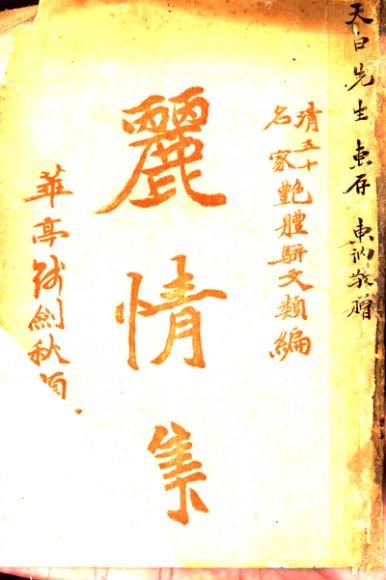 天白先生 惠存 東敬贈
清五十名家艷體駢文類編
麗情集
華亭錢劍秋